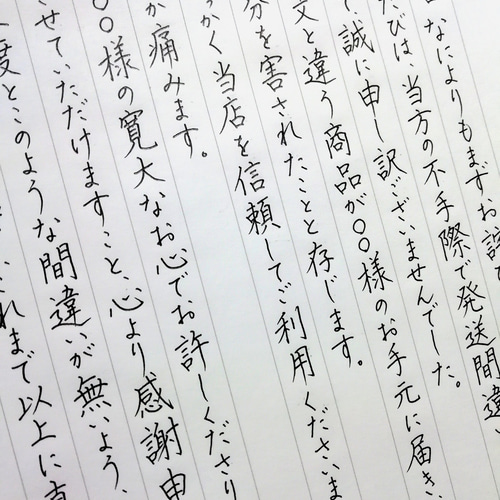 なによりもまずお詫
たびは、当方の不手際で発送間違い
、誠に申し訳ございませんでした。
文と違う商品が〇〇様のお手元に届き、
分を害されたことと存じます。
っかく当店を信頼してご利用くださいま
が痛みます。
〇〇様の寛大なお心でお許しくださり
させていただけますこと、心より感謝申
度とこのような間違いが無いよう、
これまで以上に